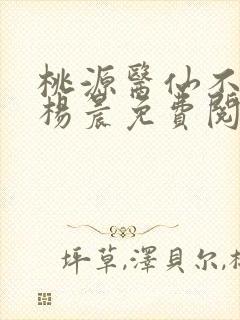 桃源醫仙不
楊晨免費閱
坪草,澤貝尔,